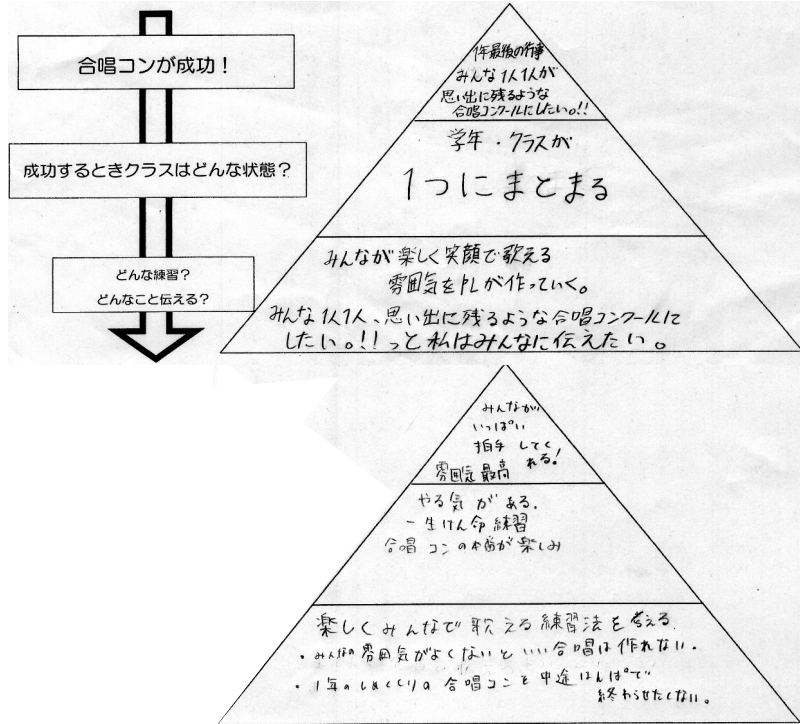 合唱コンが成功！
成功するときクラスはどんな状態？
どんな練習？
どんなこと伝える？
1年最後の行事
みんな1人1人が
思い出に残るような
合唱コンクールにしたい。!!
学年・クラスが
1つにまとまる
みんなが楽しく笑顔で歌える
雰囲気をPLが作っていく。
みんな1人1人、思い出に残るような合唱コンクールに
したい。!!っと私はみんなに伝えたい。
みんなが
いっぱい
拍手してく
れる!
雰囲気最高
やる気がある.
一生けん命練習
合唱コンの本番が楽しみ
楽しくみんなで歌える練習法を考える.
・みんなの雰囲気がよくないといい合唱は作れない.
・1年のしめくくりの合唱コンを中途はんぱで
終わらせたくない。